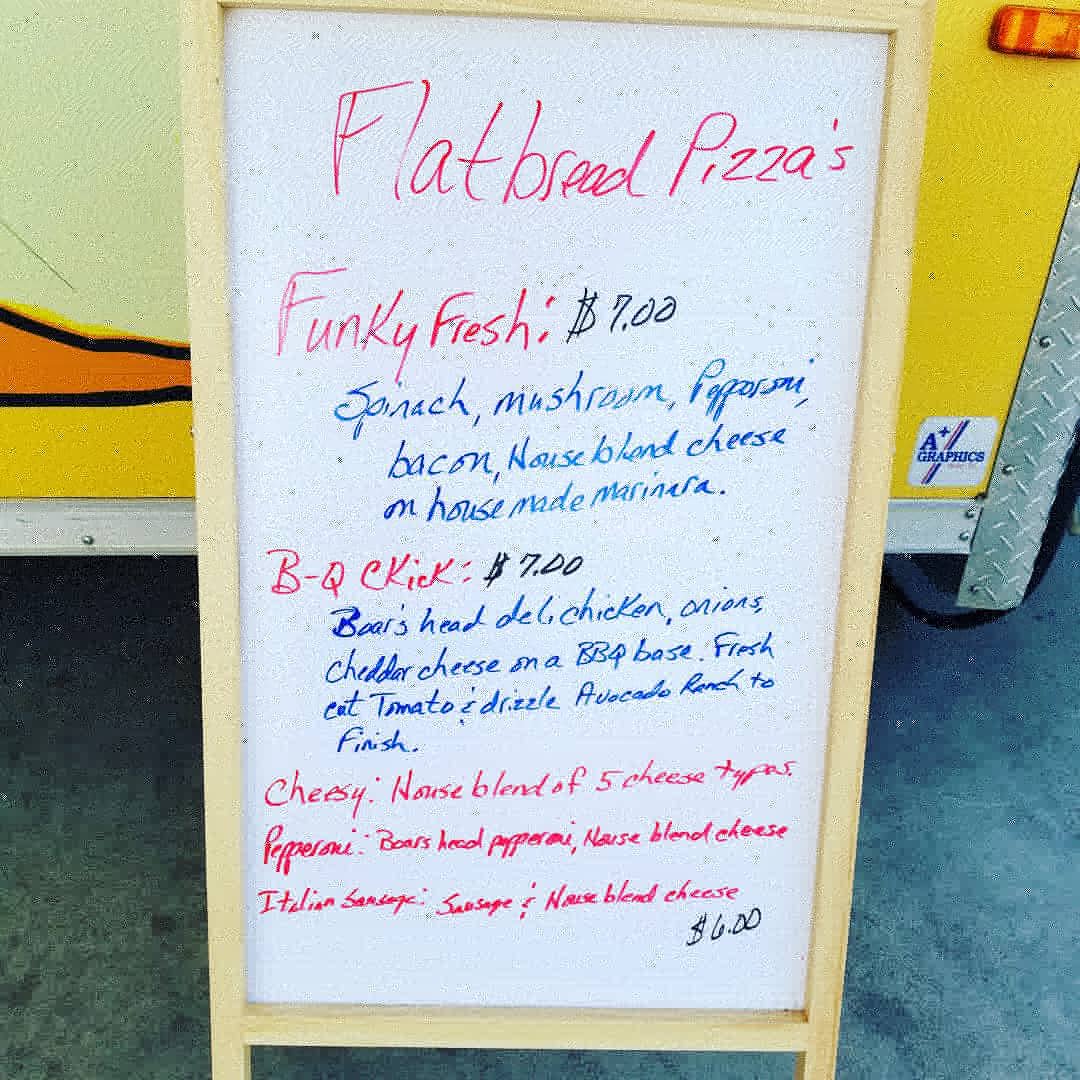 Flatbread Pizza's
Funky Fresh: $7.00
Spinach, mushroom, Pepperoni,
bacon, House blend cheese
on house made marinara.
B-Q CKicK: $7.00
Boar's head deli chicken, onions,
cheddar cheese on a BBQ base. Fresh
cut Tomato & drizzle Avocado Ranch to
finish.
Cheesy: House blend of 5 cheese types.
Pepperoni: Boars head pepperoni, House blend cheese
Italian Sausage: Sausage & House blend cheese
$6.00
A+
GRAPHICS